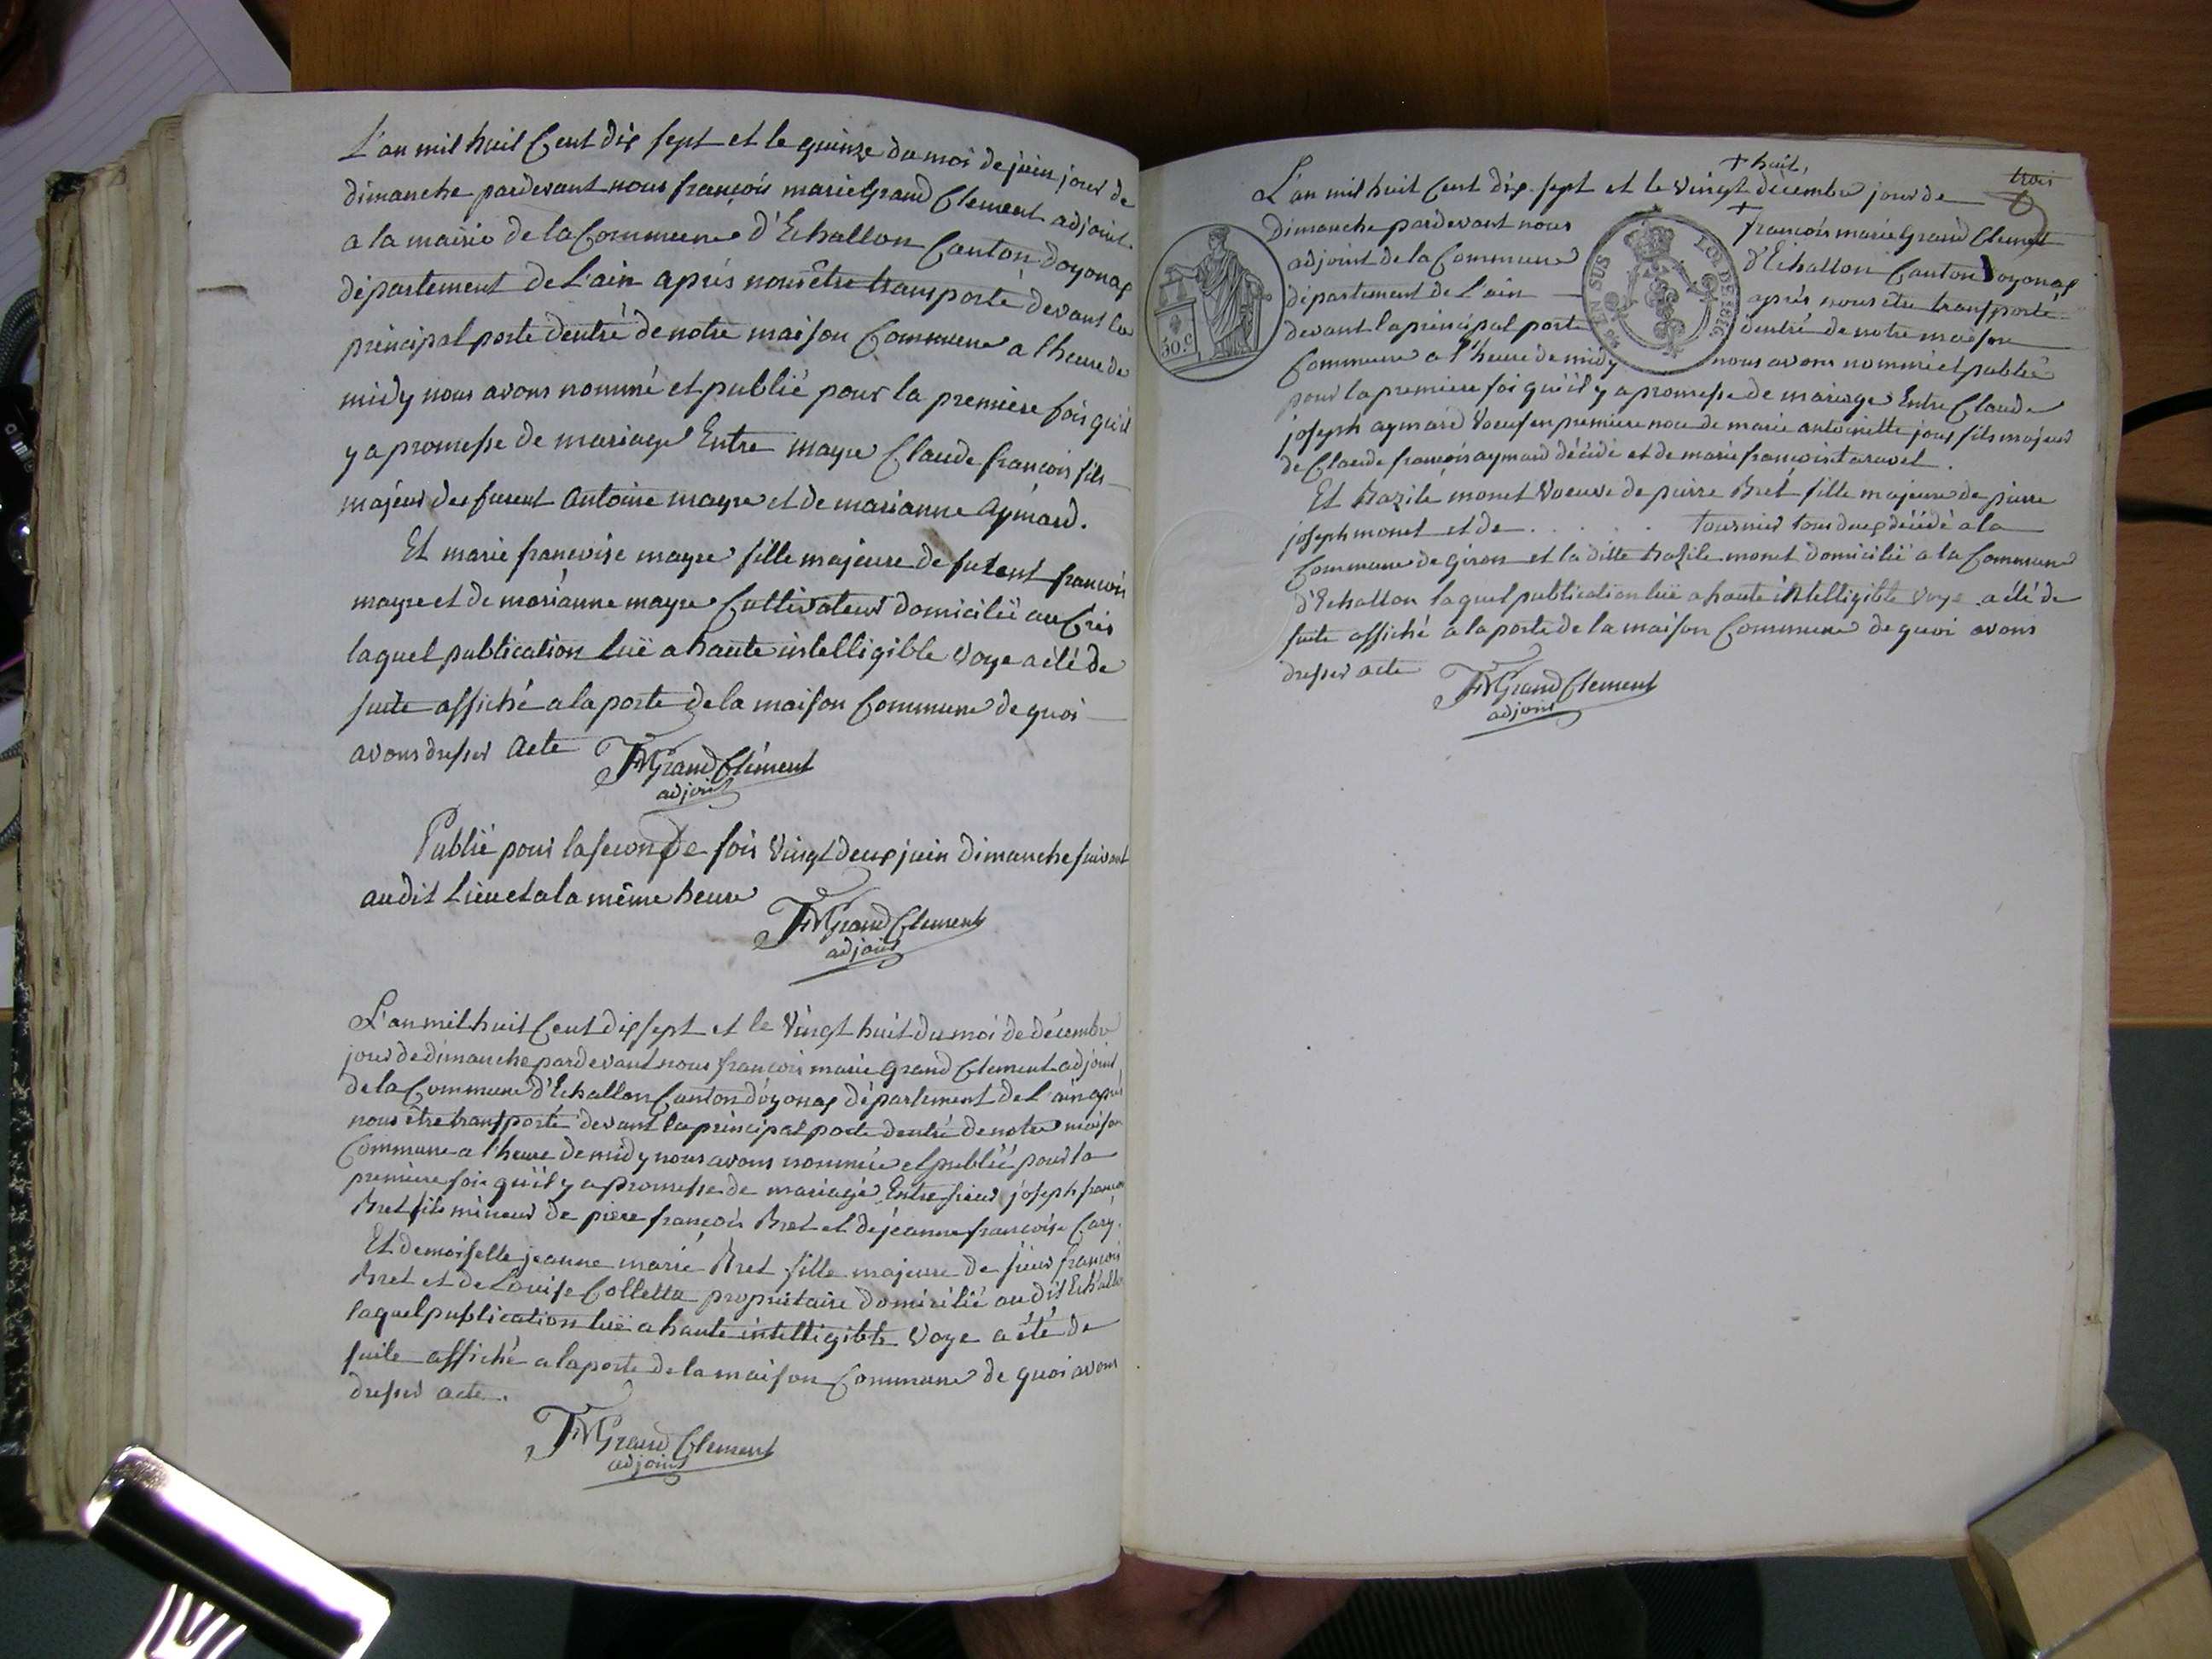 L'an mil huit Cent dix sept et le quinze du moi de juin jour de
dimanche pardevant nous françois marie Grand Clement adjoint
a la mairie de la Commune d'Echallon Canton doyonax
département de L'ain après nous être transporté devant la
principal porte dentré de notre maison Commune a l'heure de
midy nous avons nommé et publié pour la premiere fois qu'il
y a promesse de mariage Entre mayre Claude françois fils
majeur de furent Antoine mayre et de marianne Aymard.
Et marie francoise mayre fille majeure de furent francois
mayre et de marianne mayre Cultivateur domicilié au Crès
laquel publication luë a haute intelligible voye a été de
suite affiché a la porte de la maison Commune de quoi
avons dresser Acte
FMGrand Clément
adjoint
Publié pour la seconde fois vingt deux juin dimanche suivant
audit Lieu et a la même heure
FMGrand Clement
adjoint
L'an mil huit Cent dix sept et le vingt huit du moi de décembre
jour de dimanche pardevant nous francois marie Grand Clement adjoint
de la Commune d'Echallon Canton d'oyonax département de L'ain après
nous être transporté devant la principal porte dentré de notre maison
Commune a l'heure de midy nous avons nommée et publié pour la
premiere foi qu'il y a promesse de mariage Entre sieur joseph françois
Bret fils mineur de piere françois Bret et de jeanne francoise
Et demoiselle jeanne marie Bret fille majeure de sieur francois
Bret et de Louise Colletta propriétaire domicilié audit Echallon
laquel publication luë a haute intelligible voye a été de
suite affiché a la porte de la maison Commune de quoi avons
dresser acte.
FMGrand Clement
adjoint
+ huit,
trois
L'an mil huit Cent dix sept et le vingt + décembre jour de
dimanche pardevant nous françois marie Grand Clement
adjoint de la Commune d'Echallon Canton doyonax
département de L'ain après nous être transporté
devant la principal porte dentré de notre maison
Commune a l'heure de midy nous avons nommé et publié
pour la premiere foi qu'il y a promesse de mariage Entre Claude
joseph aymard voeuf en premiere noce de marie antoinette fils majeur
de Claude françois aymard décédé et de marie francoise taravel.
Et Bazile monet Voeuve de pierre Bret fille majeure de pierre
joseph monet et de . . . . . tournier tous deux décédé a la
Commune de giron et la ditte Bazile monet domicilié a la Commune
d'Echallon laquel publication luë a haute intelligible voye a été de
suite affiché a la porte de la maison Commune de quoi avons
dresser acte
FMGrand Clement
adjoint
50.C
EN SUS
LOI DE 1816